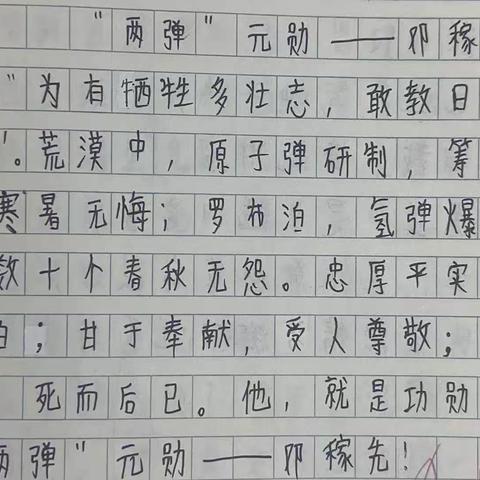 "两弹"元勋——邓稼
"为有牺牲多壮志，敢教日
"。荒漠中，原子弹研制，筹
寒暑无悔；罗布泊，氢弹爆
数十个春秋无怨。忠厚平实
；甘于奉献，受人尊敬；
死而后已。他，就是功勋
两弹"元勋——邓稼先！